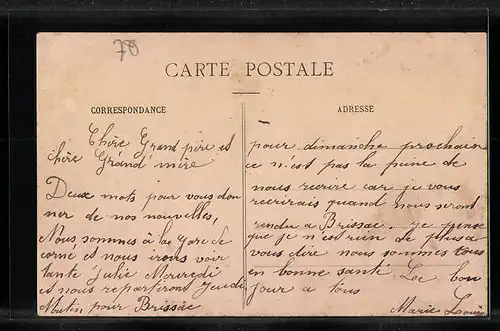 78
CARTE POSTALE
CORRESPONDANCE
Chère Grand père et
chère Grand mère
Deux mots pour vous don
ner de nos nouvelles,
Nous sommes à la Gare de
corné et nous irons voir
tante Julie Mercredi
et nous repartiront Jeudi
Matin pour Brissac
ADRESSE
pour dimanche prochain
ce n'est pas la peine de
nous reecrire car je vous
reecrirais quand nous seront
rendu a Brissac. Je pense
que je n'est rien de plus a
vous dire nous sommes tous
en bonne santé. Le bon
jour a tous
Marie Louise